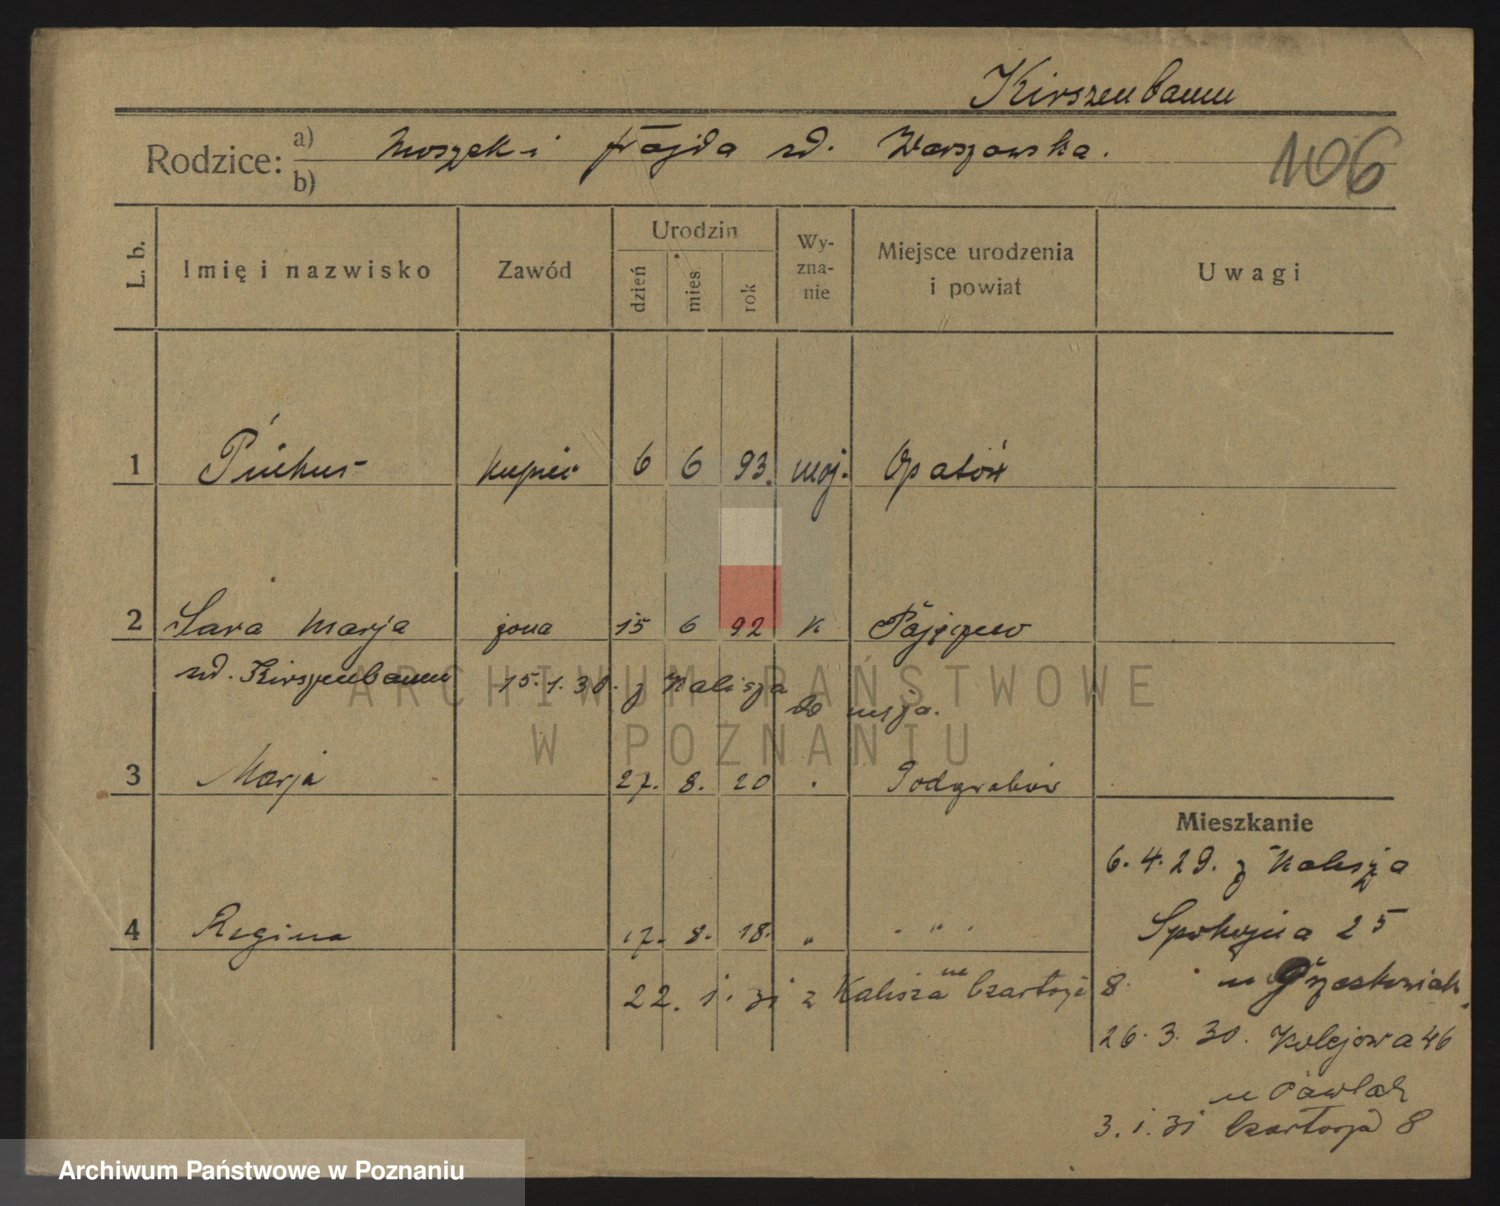 Kirszenbaum
Rodzice: a) Moszek i Frajda zd. Warszawska.
b)
106
L. b. Imię i nazwisko Zawód Urodzin dzień mies rok Wy-zna-nie Miejsce urodzenia i powiat Uwagi
1 Pinkus kupiec 6 6 93. moj. Opatów
2 Sara Marja żona 15 6 92 "
zd. Kirszenbaum 15.1.30. z Kalisza
do męża.
3 Marja 27. 8. 20 " Podgrabów
4 Regina 17. 8. 18. " " "
22. 1. 31 z Kalisza na Czartorja 8
Mieszkanie
6. 4. 29. z Kalisza
Spokojna 25
u
26. 3. 30. Kolejowa 46
u Pawlak
3. 1. 31 Czartorja 8
ARCHIWUM PAŃSTWOWE
W POZNANIU
Archiwum Państwowe w Poznaniu